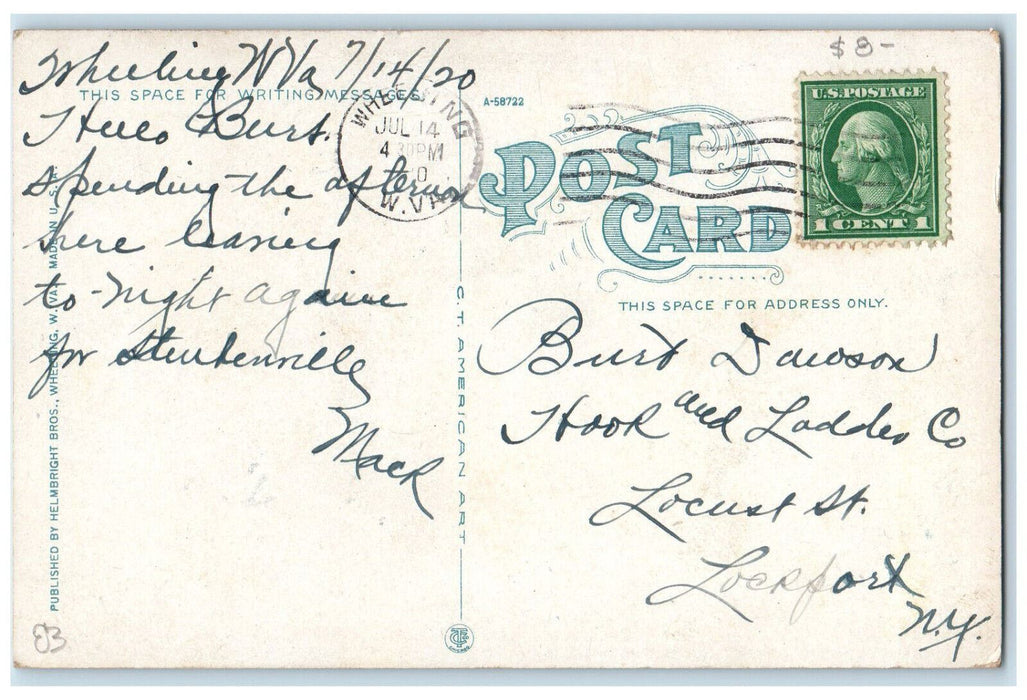 $8-
Wheeling W Va 7/14/20
THIS SPACE FOR WRITING MESSAGES
Hello Burt.
spending the afternoon
here leaving
to-night again
for Steubenville
Mack
PUBLISHED BY HELMBRIGHT BROS., WHEELING, W. VA. MADE IN U.S.A.
WHEELING
JUL 14
4 30PM
W.VA.
A-58722
POST CARD
U.S. POSTAGE
1 CENT 1
C.T. AMERICAN ART
THIS SPACE FOR ADDRESS ONLY.
Burt Dawson
Hook and Ladder Co
Locust St.
Lockport
N.Y.